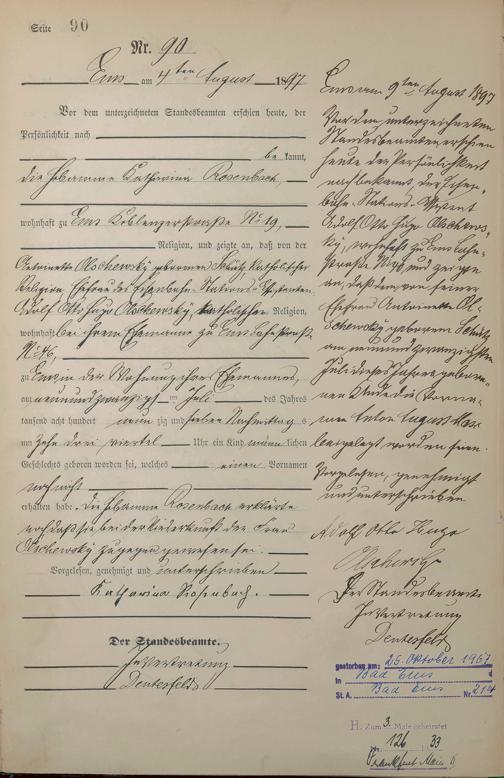 Seite 90
Nr. 90
Ems am 4ten August 1897
Vor dem unterzeichneten Standesbeamten erschien heute, der
Persönlichkeit nach
be kannt,
die Hebamme Katharina Rosenbach,
wohnhaft zu Ems Koblenzerstraße No 19,
Religion, und zeigte an, daß von der
Antoinette Olschewsky geborenen Schütz katholischer
Religion, Ehefrau des Eisenbahn-Stations-Assistenten
Adolf Otto Hugo Olschewsky, katholischer Religion,
wohnhaft bei ihrem Ehemanne zu Ems
No 46,
zu Ems in der Wohnung ihres Ehemannes,
am neunundzwanzigsten Juli des Jahres
tausend acht hundert neunzig und sieben Nachmittags
um zehn drei viertel Uhr ein Kind männlichen
Geschlechts geboren worden sei, welches einen Vornamen
noch nicht
erhalten habe. Die Hebamme Rosenbach erklärte
noch daß sie bei der Niederkunft der Frau
Olschewsky zugegen gewesen sei.
Vorgelesen, genehmigt und unterschrieben
Katharina Rosenbach.
Der Standesbeamte.
In Vertretung
Ems am 9ten August 1897
Vor dem unterzeichneten
Standesbeamten erschien
heute der Persönlichkeit
nach bekannt, der Eisen-
bahn-Stations-Assistent
Adolf Otto Hugo Olschews-
ky, wohnhaft zu Ems
No 46 und zeigte
an, daß dem von seiner
Ehefrau Antoinette Ol-
schewsky geborenen Schütz
am neunundzwanzigsten
Juli dieses Jahres gebore-
nen Kinde die Vorna-
men Anton August Max
beigelegt worden seien.
Vorgelesen, genehmigt
und unterschrieben
Adolf Otto Hugo
Olschewsky
Der Standesbeamte
In Vertretung
gestorben am: 25. Oktober 1967
in Bad Ems
St. A. Bad Ems Nr. 214
H. Zum 3. Male geheiratet
Nr. 126 33
Frankfurt Main